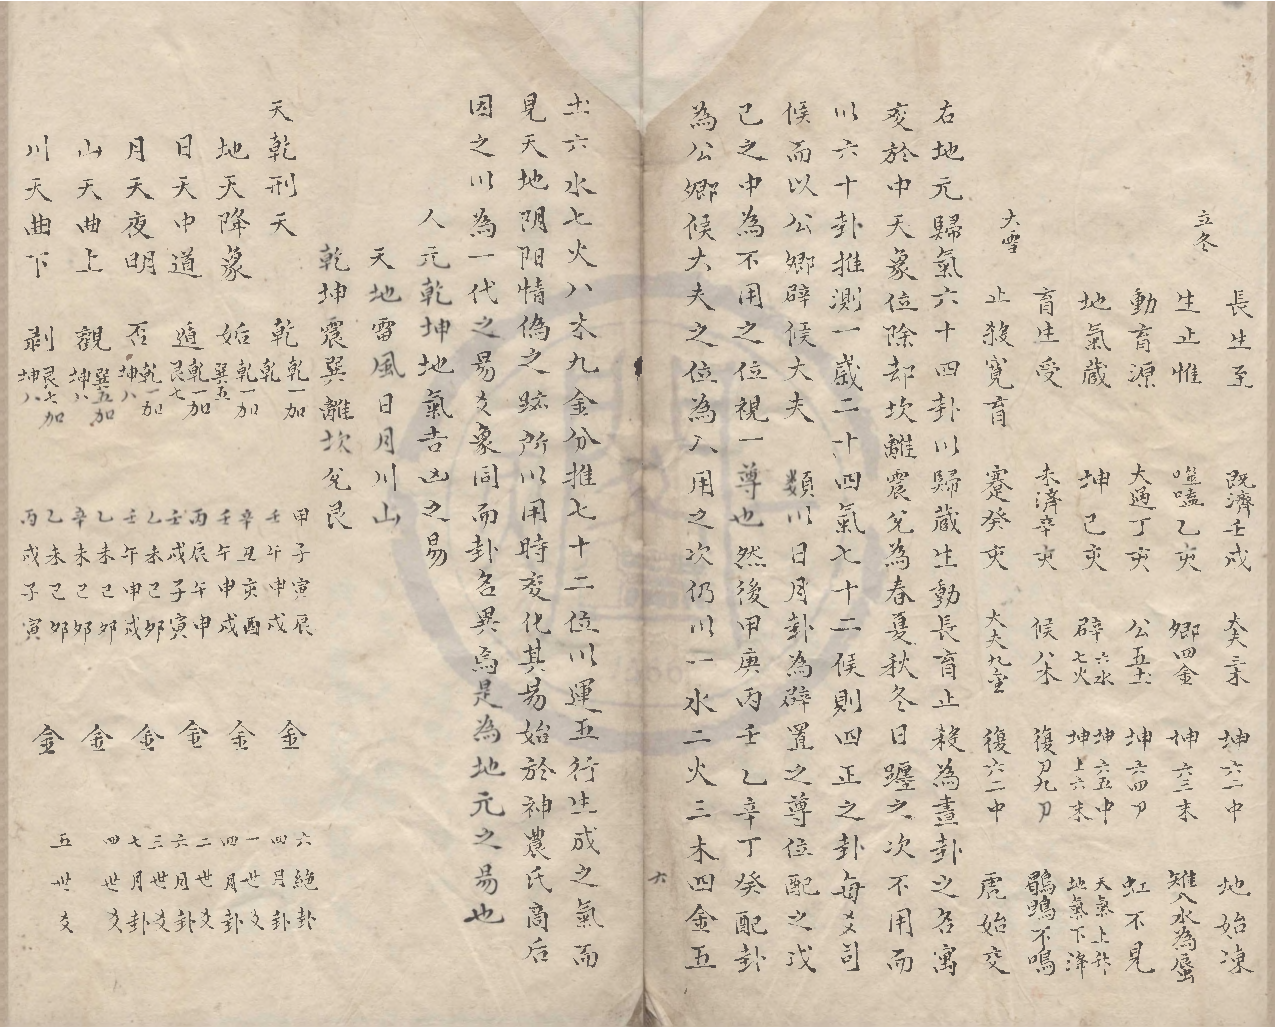 立冬
長生至 既濟壬戍 大夫三木 坤六二中 地始凍
生止惟 噬嗑乙亥 卿四金 坤六三末 雉入水為蜃
動育源 大過丁亥 公五土 坤六四刀 虹不見
地氣藏 坤己亥 辟六水七火 坤六五中坤上六末 天氣上升地氣下降
育生受 未濟辛亥 候八木 復刀九刀 鶡鴠不鳴
大雪
止殺寬育 蹇癸亥 大夫九金 復六二中 虎始交
右地元歸氣六十四卦以歸藏生動長育止殺為畫卦之名寓
变於中天象位除却坎離震兌為春夏秋冬日躔之次不用而
以六十卦推測一歲二十四氣七十二候則四正之卦每爻司
候而以公卿辟候大夫 類以日月卦為辟置之尊位配之戊
己之中為不用之位視一尊也然後甲庚丙壬乙辛丁癸配卦
為公卿候大夫之位為入用之次仍以一水二火三木四金五
六
土六水七火八木九金分推七十二位以運五行生成之氣而
見天地阴阳情偽之跡所以用時变化其易始於神農氏商后
因之以為一代之易爻象同而卦名異焉是為地元之易也
人元乾坤地氣吉凶之易
天地雷風日月川山
乾坤震巽離坎兌艮
天乾刑天 乾乾一加乾 甲子寅辰壬午申戍 金 六絶卦四月卦
地天降象 姤乾一加巽五 辛丑亥酉壬午申戍 金 一世爻四月卦
日天中道 遁乾一加艮七 丙辰午申壬戍子寅 金 二世爻六月卦
月天夜明 否乾一加坤八 乙未己夘壬午申戍 金 三世爻七月卦
山天曲上 觀巽五加坤八 乙未己夘辛未己夘 金 四世爻
川天曲下 剥艮七加坤八 乙未己夘丙戍子寅 金 五世爻